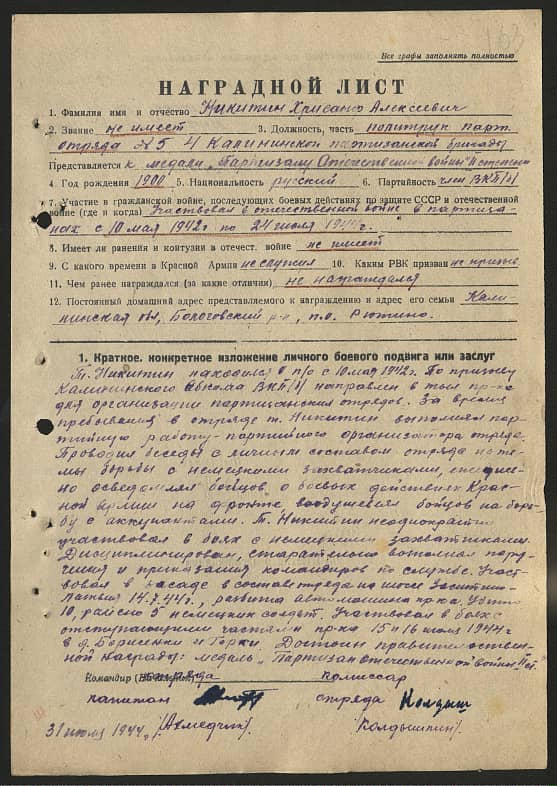 Все графы заполнять полностью
НАГРАДНОЙ ЛИСТ
1. Фамилия имя и отчество Никитин Хрисанф Алексеевич
2. Звание не имеет 3. Должность, часть политрук парт.
отряда № 5 4 Калининской партизанской бригады
Представляется к медали „Партизану Отечественной войны" II степени
4. Год рождения 1900 5. Национальность русский 6. Партийность член ВКП/б/
7. Участие в гражданской войне, последующих боевых действиях по защите СССР и отечественной
войне (где и когда) Участвовал в отечественной войне в партиза-
нах с 10 мая 1942 г. по 24 июля 1944 г.
8. Имеет ли ранения и контузии в отечест. войне не имеет
9. С какого времени в Красной Армии не служил 10. Каким РВК призван не призыв.
11. Чем ранее награждался (за какие отличия) не награждался
12. Постоянный домашний адрес представляемого к награждению и адрес его семьи Кали-
нинская обл, Бологовский р-н, п.о. Рютино.
1. Краткое, конкретное изложение личного боевого подвига или заслуг
Т. Никитин находился в п/о с 10 мая 1942 г. По призыву
Калининского Обкома ВКП/б/ направлен в тыл пр-ка
для организации партизанских отрядов. За время
пребывания в отряде т. Никитин выполнял пар-
тийную работу - партийного организатора отряда.
Проводил беседы с личным составом отряда на те-
мы борьбы с немецкими захватчиками,
но осведомлял бойцов, о боевых действиях Крас-
ной армии на фронте воодушевляя бойцов на борь-
бу с аккупантами. Т. Никитин неоднократно
участвовал в боях с немецкими захватчиками.
Дисциплинирован, старательно выполнял пору-
чения и приказания командиров по службе. Участ-
вовал в засаде в составе отряда на шоссе
Латвия 14.7.44 г., разбита автомашина пр-ка. Убито
10, ранено 5 немецких солдат. Участвовал в боях с
отступающими частями пр-ка 15 и 16 июля 1944 г
в д. Борисенки и Горки. Достоин правительствен-
ной награды: медаль „Партизан отечественной войны" II ст.
Командир отряда комиссар
капитан отряда Колдыш
31 июля 1944 г. /Ахмедчин/. /Колдышкин/.